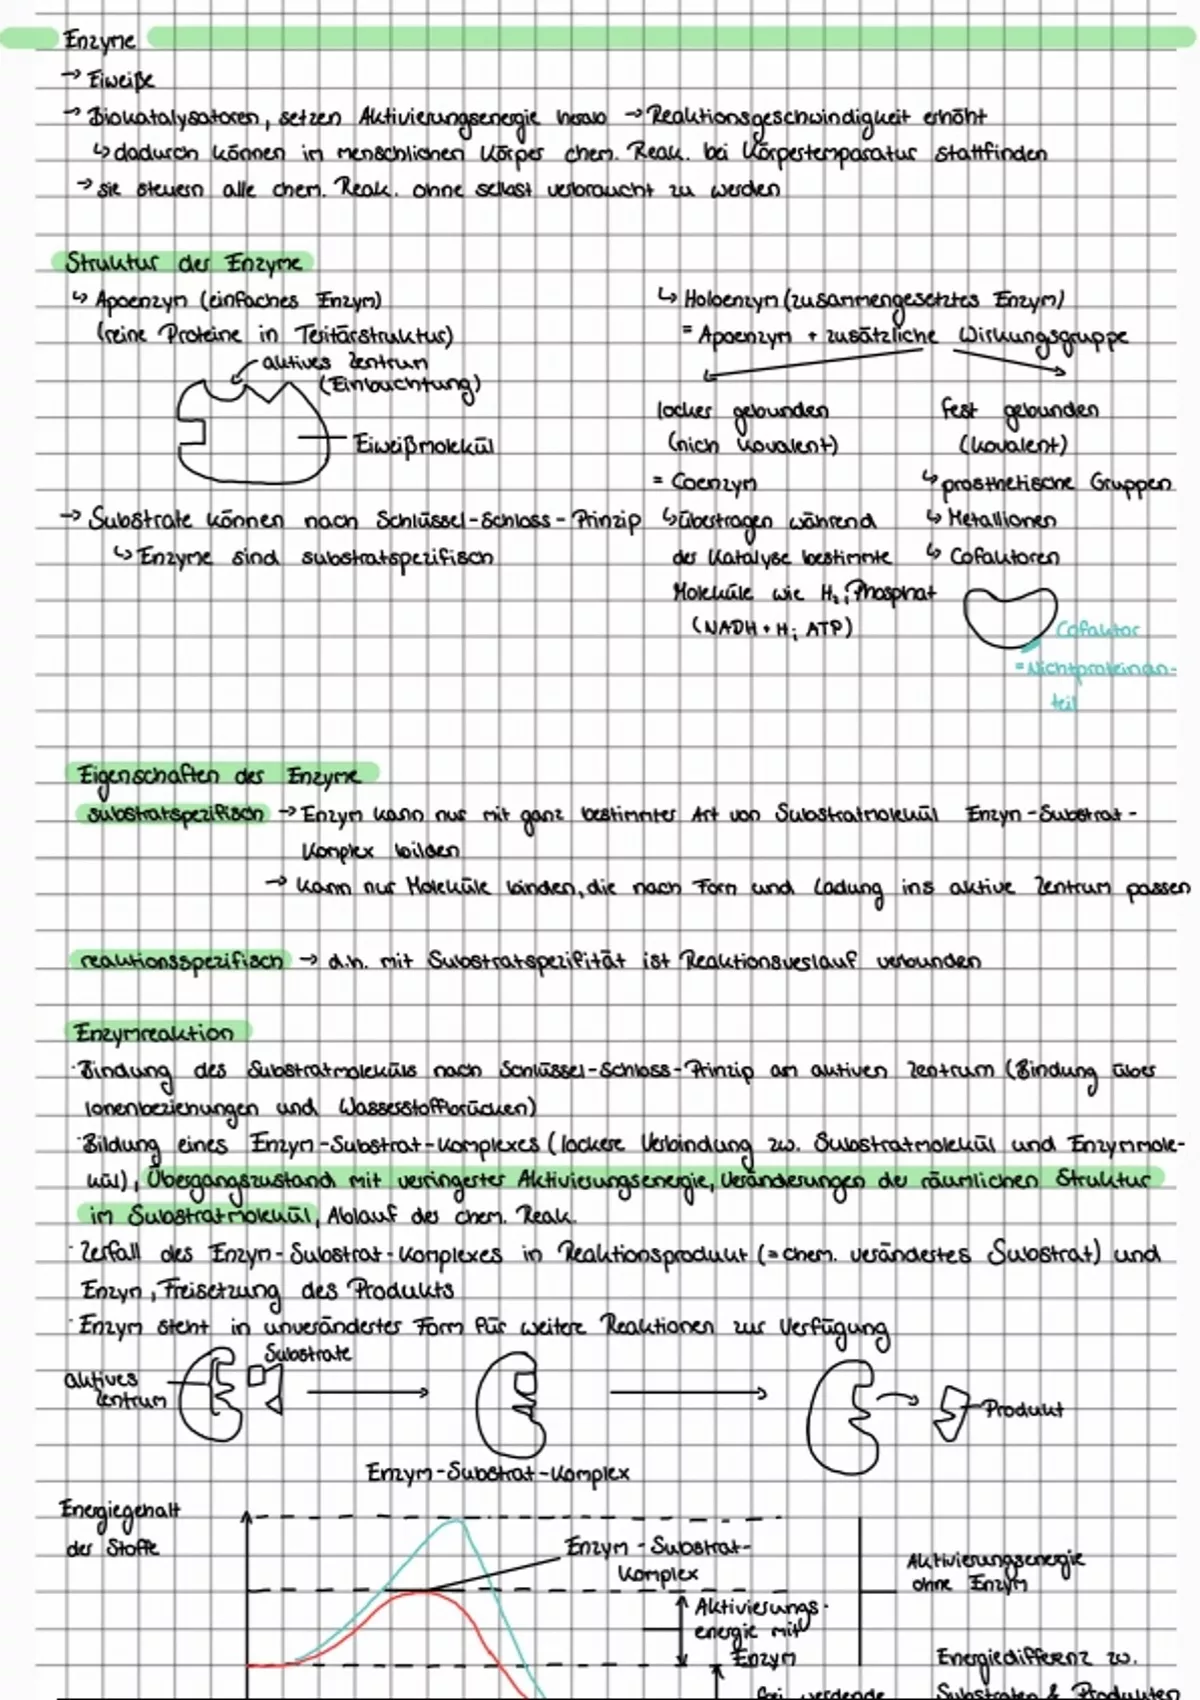 Enzyme
→ Eiweiße
→ Biokatalysatoren, setzen Aktivierungsenergie herab → Reaktionsgeschwindigkeit erhöht
↳ dadurch können im menschlichen Körper chem. Reak. bei Körpertemperatur stattfinden
→ sie steuern alle chem. Reak. ohne selbst verbraucht zu werden
Struktur der Enzyme
↳ Apoenzym (einfaches Enzym)
(reine Proteine in Teritärstruktur)
aktives Zentrum
(Einbuchtung)
Eiweißmolekül
→ Substrate können nach Schlüssel-Schloss-Prinzip
↳ Enzyme sind substratspezifisch
↳ Holoenzym (zusammengesetztes Enzym)
= Apoenzym + zusätzliche Wirkungsgruppe
locker gebunden
(nich kovalent)
= Coenzym
↳ übertragen während
der Katalyse bestimmte
Moleküle wie H₂; Phosphat
(NADH + H; ATP)
fest gebunden
(kovalent)
↳ prosthetische Gruppen
↳ Metallionen
↳ Cofaktoren
Cofaktor
= Nichtproteinan-
teil
Eigenschaften der Enzyme
substratspezifisch → Enzym kann nur mit ganz bestimmter Art von Substratmolekül Enzym-Substrat-
Komplex bilden
→ kann nur Moleküle binden, die nach Form und Ladung ins aktive Zentrum passen
reaktionsspezifisch → d.h. mit Substratspezifität ist Reaktionsverlauf verbunden
Enzymreaktion
· Bindung des Substratmoleküls nach Schlüssel-Schloss-Prinzip am aktiven Zentrum (Bindung über
Ionenbeziehungen und Wasserstoffbrücken)
· Bildung eines Enzym-Substrat-Komplexes (lockere Verbindung zw. Substratmolekül und Enzymmole-
kül), Übergangszustand mit verringerter Aktivierungsenergie, Veränderungen der räumlichen Struktur
im Substratmolekül, Ablauf der chem. Reak.
· Zerfall des Enzym-Substrat-Komplexes in Reaktionsprodukt (= chem. verändertes Substrat) und
Enzym, Freisetzung des Produkts
· Enzym steht in unveränderter Form für weitere Reaktionen zur Verfügung
Substrate
aktives
Zentrum
Produkt
Enzym-Substrat-Komplex
Energiegehalt
der Stoffe
Enzym-Substrat-
Komplex
Aktivierungsenergie
ohne Enzym
Aktivierungs-
energie mit
Enzym
Energiedifferenz zw.
Substraten & Produkten
frei werdende